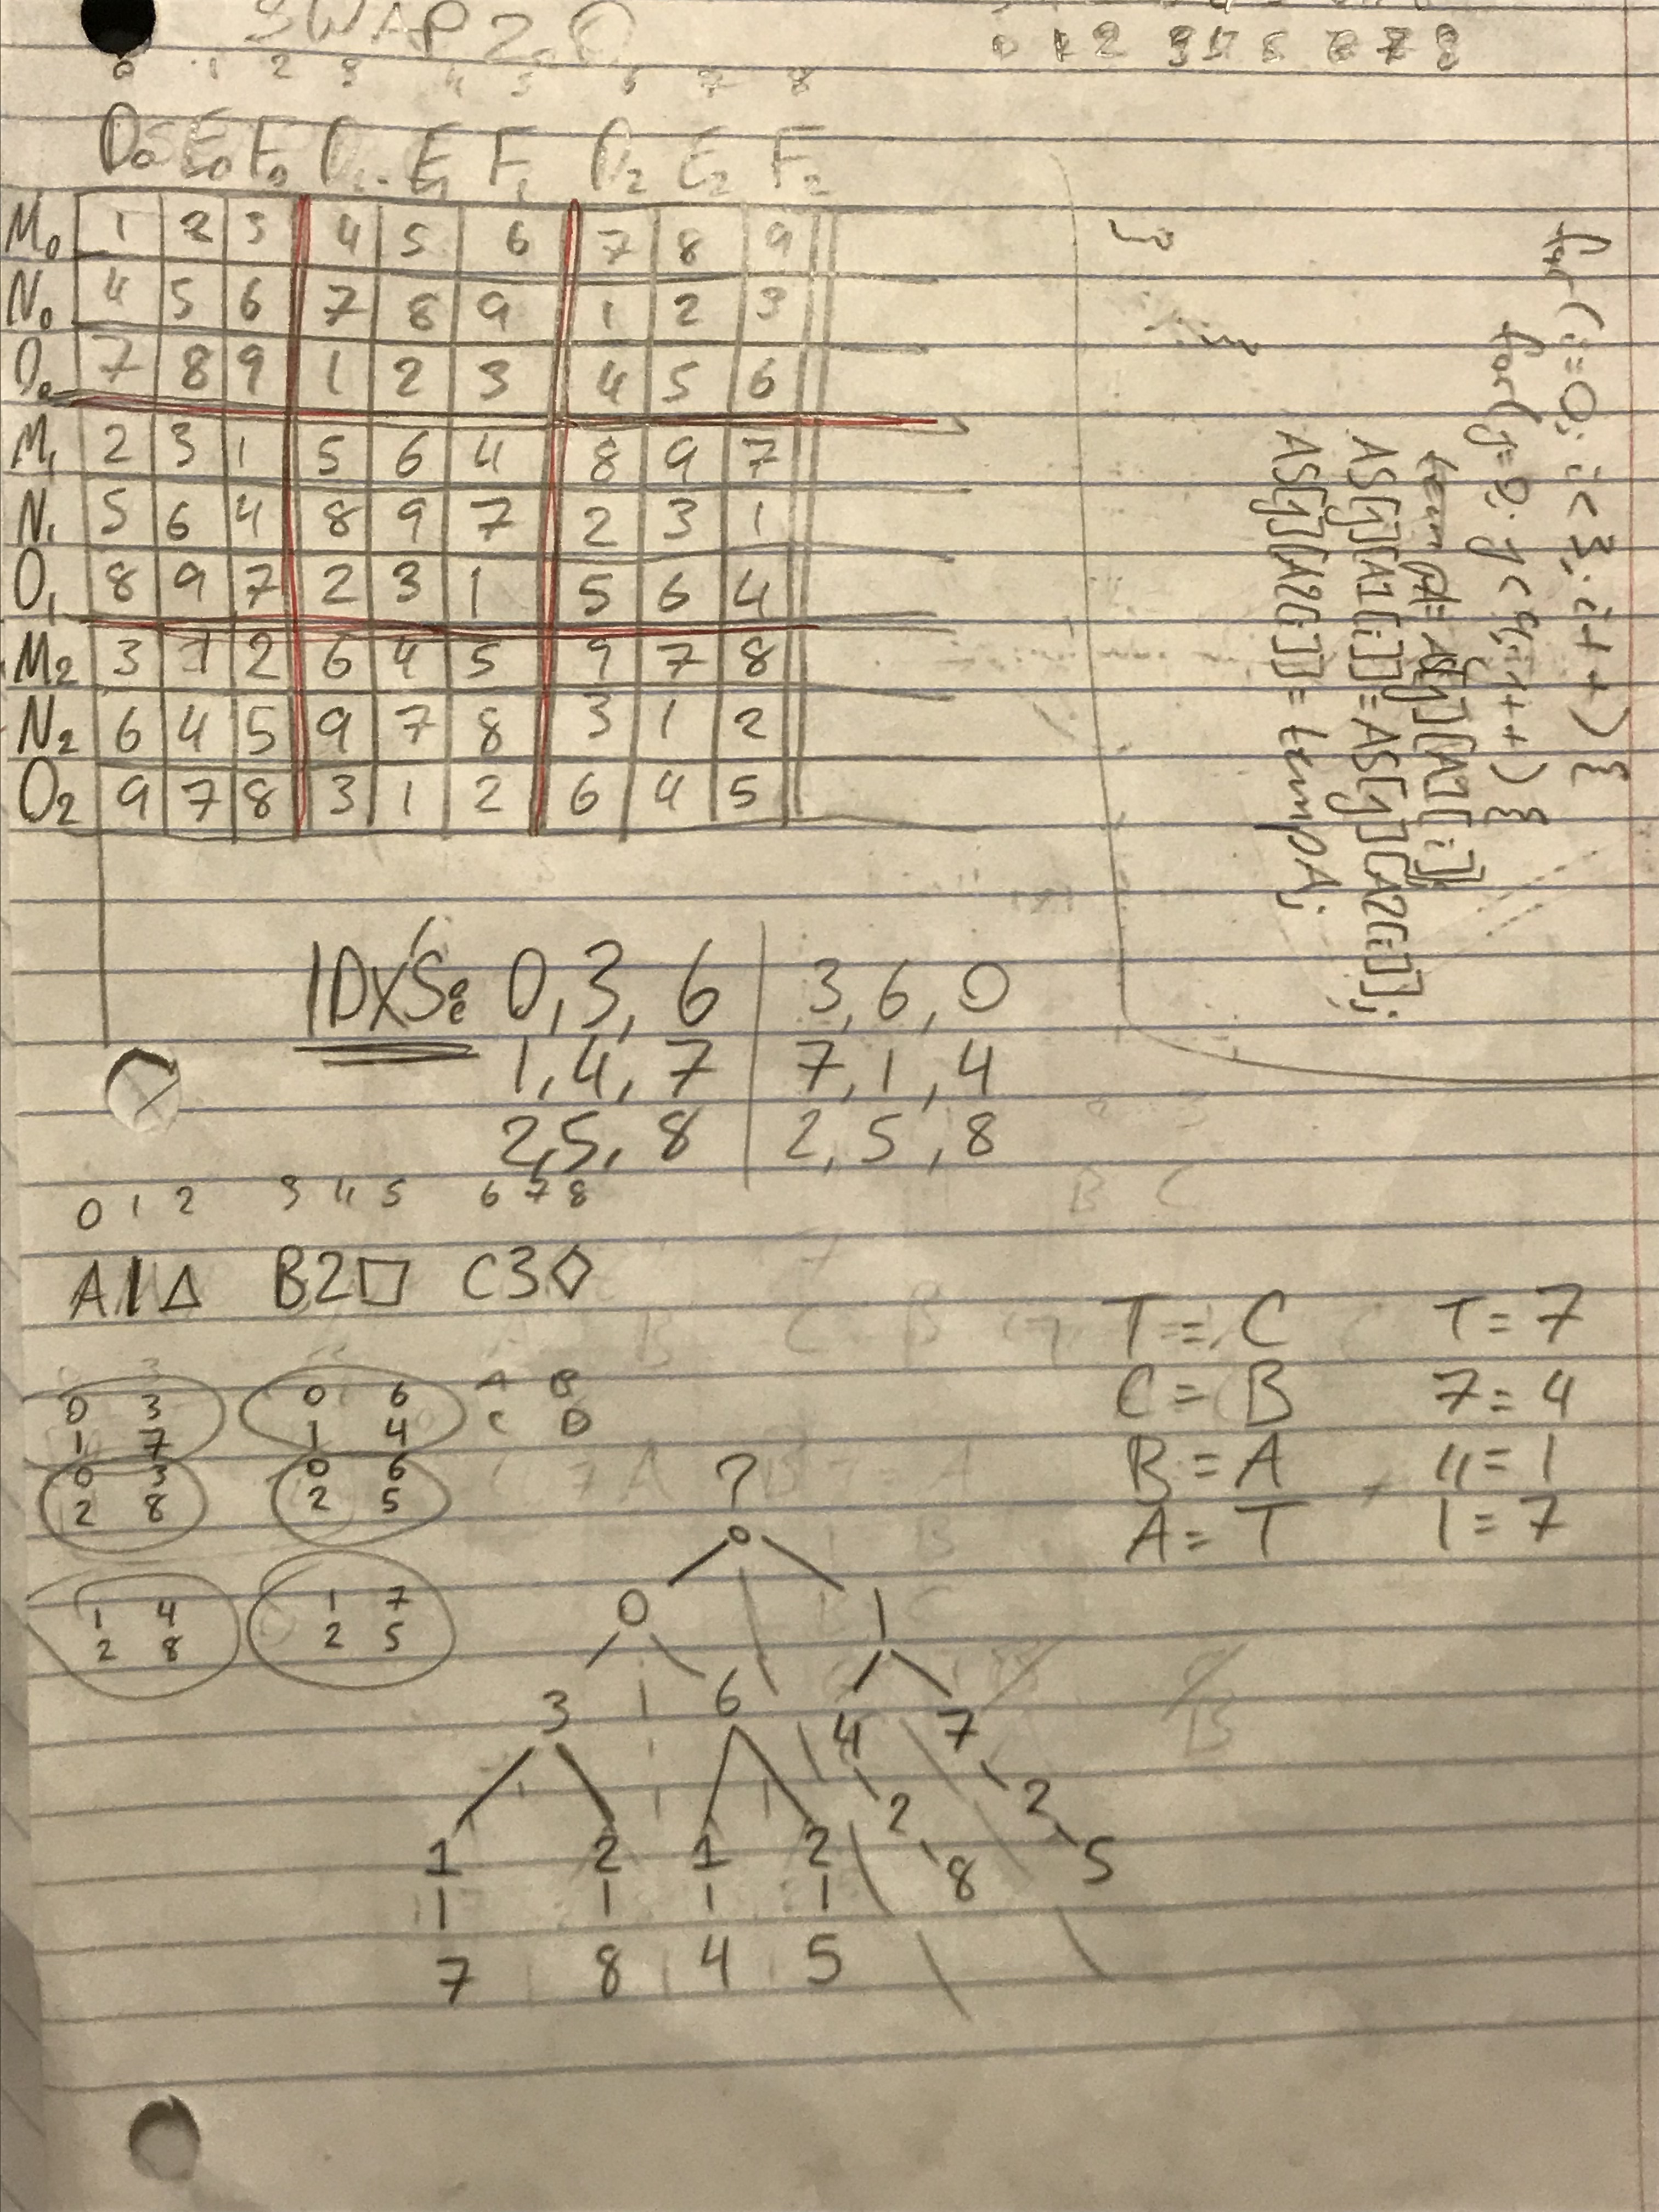 SWAP 2.0
0 1 2 3 4 5 6 7 8
0 1 2 3 4 5 6 7 8
D0 E0 F0 D1 E1 F1 D2 E2 F2
M0 1 2 3 4 5 6 7 8 9
N0 4 5 6 7 8 9 1 2 3
O0 7 8 9 1 2 3 4 5 6
M1 2 3 1 5 6 4 8 9 7
N1 5 6 4 8 9 7 2 3 1
O1 8 9 7 2 3 1 5 6 4
M2 3 1 2 6 4 5 9 7 8
N2 6 4 5 9 7 8 3 1 2
O2 9 7 8 3 1 2 6 4 5
for(i=0; i<3; i++){
for(j=0; j<9; j++){
tempA = AS[j][A1[i]];
AS[j][A1[i]] = AS[j][A2[i]];
AS[j][A2[i]] = tempA;
IDXS: 0, 3, 6 | 3, 6, 0
1, 4, 7 | 7, 1, 4
2, 5, 8 | 2, 5, 8
0 1 2 3 4 5 6 7 8
A1△ B2□ C3◇
T = C T = 7
C = B 7 = 4
B = A 4 = 1
A = T 1 = 7
0 3 0 6 A B
1 7 1 4 C D
0 3 0 6
2 8 2 5
1 4 1 7
2 8 2 5
?
0 1
3 6 4 7
2 2
1 2 1 2 8 5
7 8 4 5